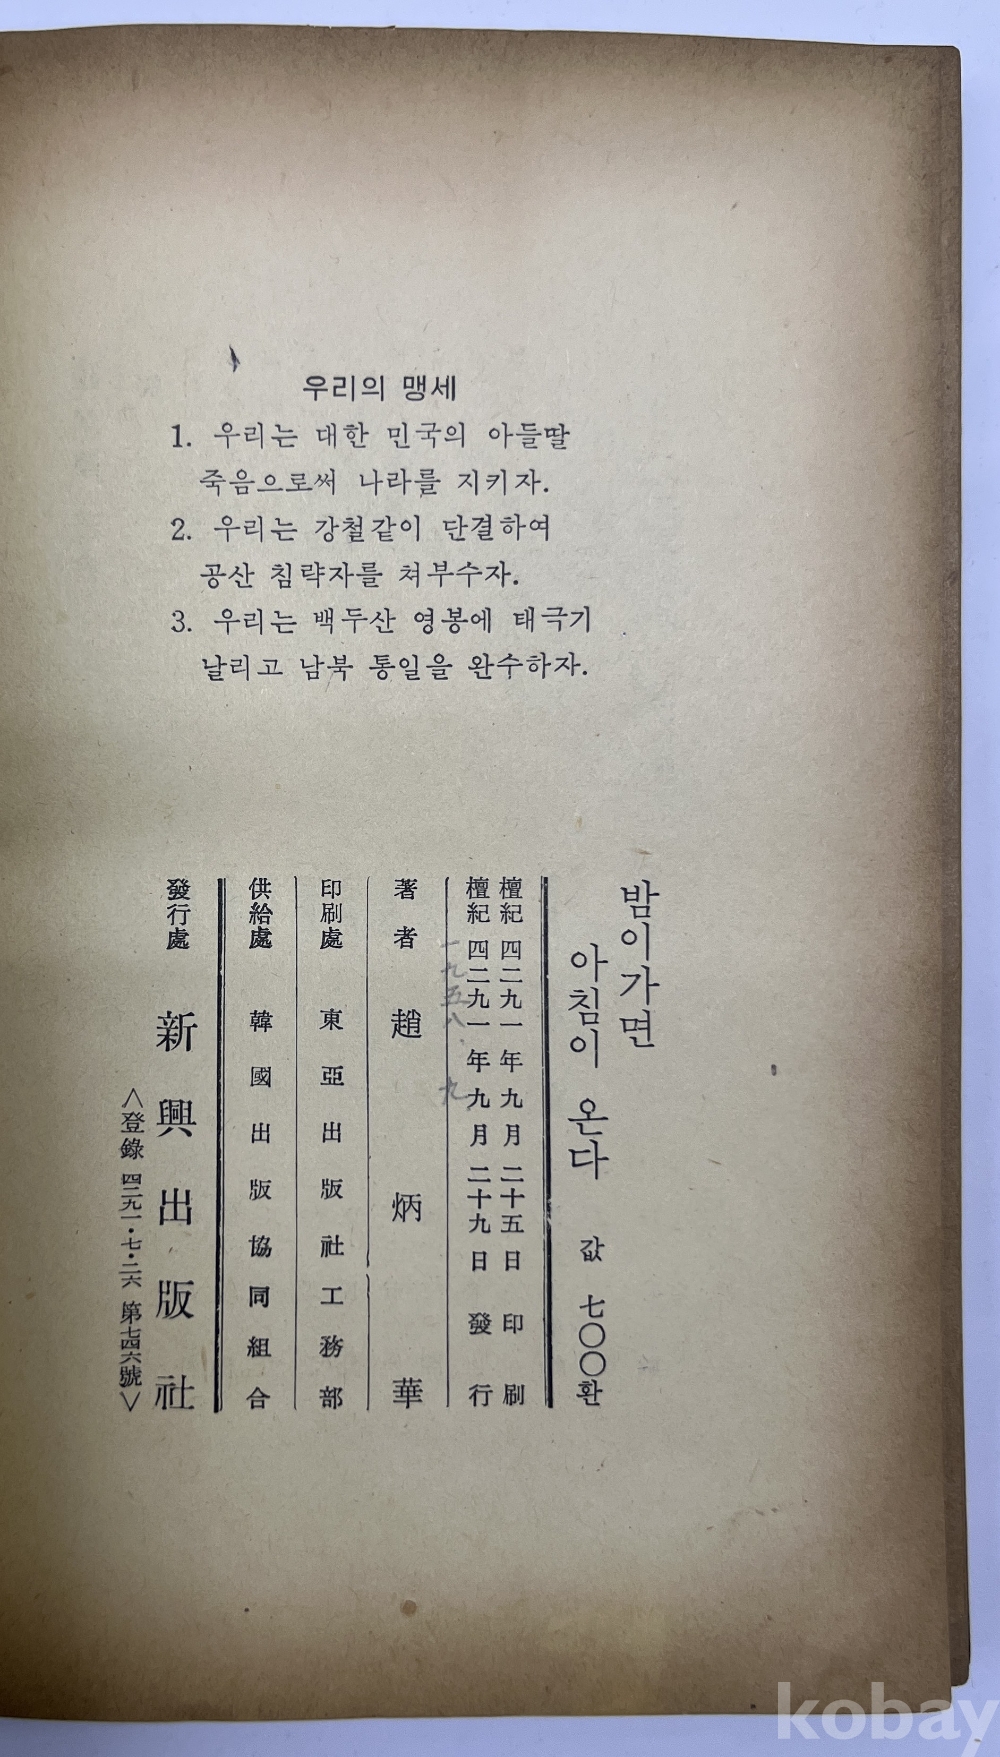 우리의 맹세
1. 우리는 대한 민국의 아들딸
죽음으로써 나라를 지키자.
2. 우리는 강철같이 단결하여
공산 침략자를 쳐부수자.
3. 우리는 백두산 영봉에 태극기
날리고 남북 통일을 완수하자.
밤이가면
아침이 온다 값 七〇〇환
檀紀 四二九一年 九月 二十五日 印刷
檀紀 四二九一年 九月 二十九日 發行
一九五八、九
著者 趙炳華
印刷處 東亞出版社工務部
供給處 韓國出版協同組合
發行處 新興出版社
<登錄 四二九一·七·二六 第七四六號>
kobay